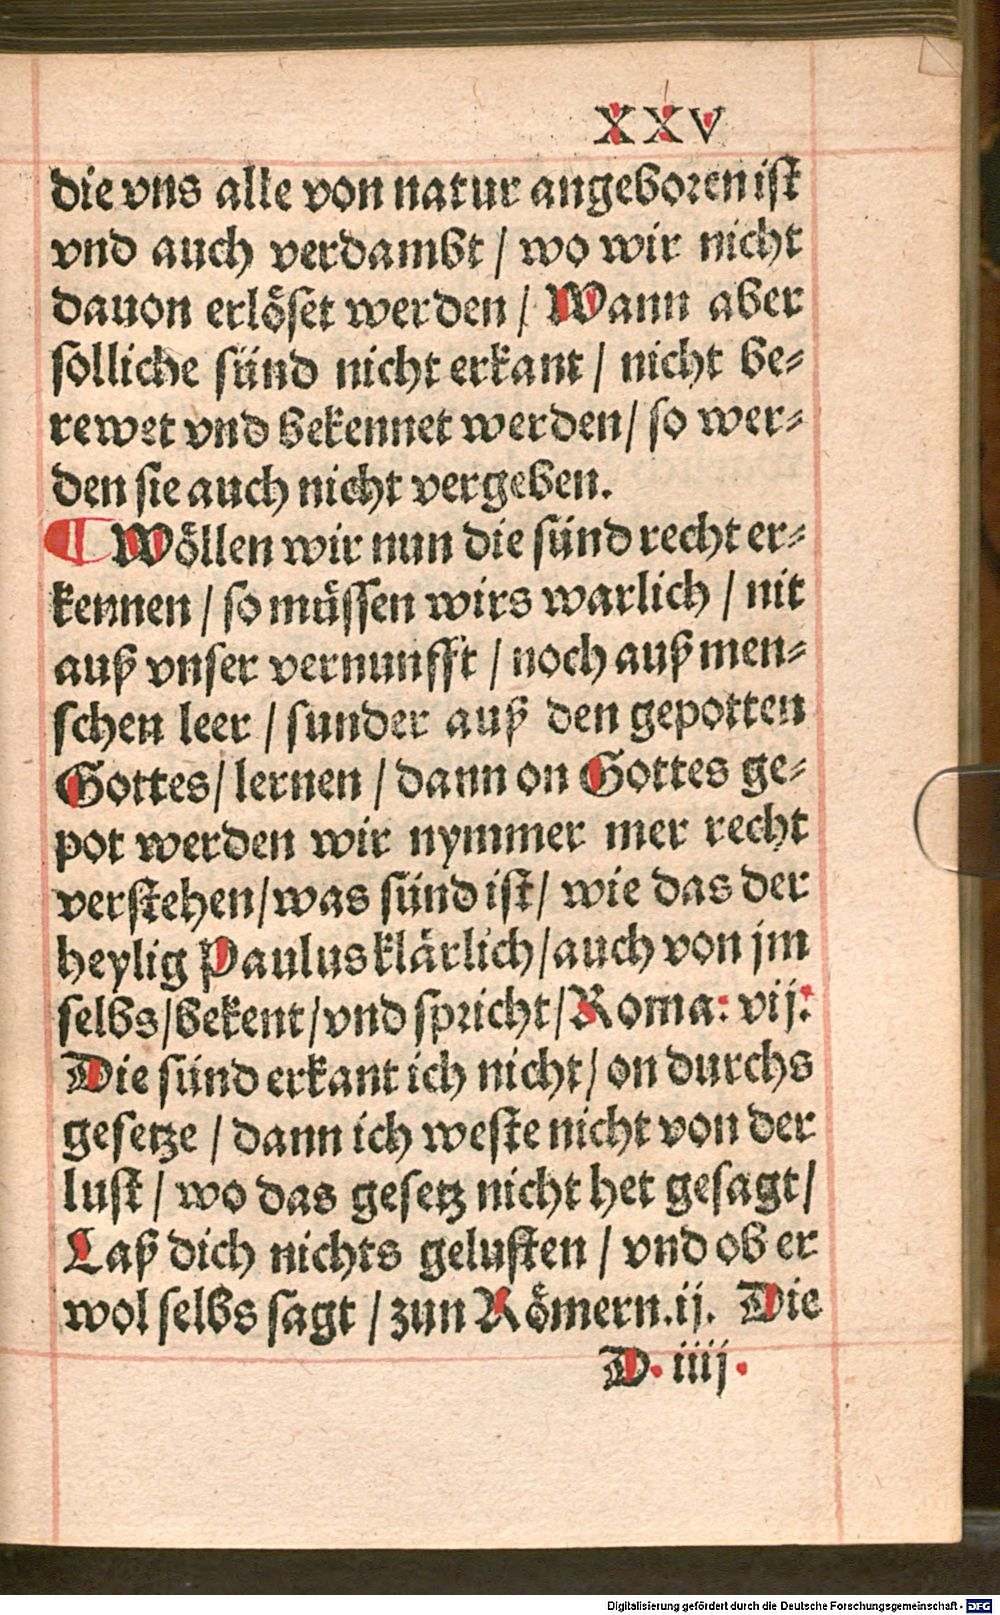 XXV
die vns alle von natur angeboren ist
vnd auch verdambt / wo wir nicht
dauon erlöset werden / Wann aber
solliche sünd nicht erkant / nicht be⸗
rewet vnd bekennet werden / so wer⸗
den sie auch nicht vergeben.
¶ Wöllen wir nun die sünd recht er⸗
kennen / so müssen wirs warlich / nit
auß vnser vernunfft / noch auß men⸗
schen leer / sunder auß den gepotten
Gottes / lernen / dann on Gottes ge⸗
pot werden wir nymmer mer recht
verstehen / was sünd ist / wie das der
heylig Paulus klärlich / auch von jm
selbs / bekent / vnd spricht / Roma: vij:
Die sünd erkant ich nicht / on durchs
gesetze / dann ich weste nicht von der
lust / wo das gesetz nicht het gesagt /
Laß dich nichts gelusten / vnd ob er
wol selbs sagt / zun Römern.ij. Die
D. iiij.
Digitalisierung gefördert durch die Deutsche Forschungsgemeinschaft - DFG